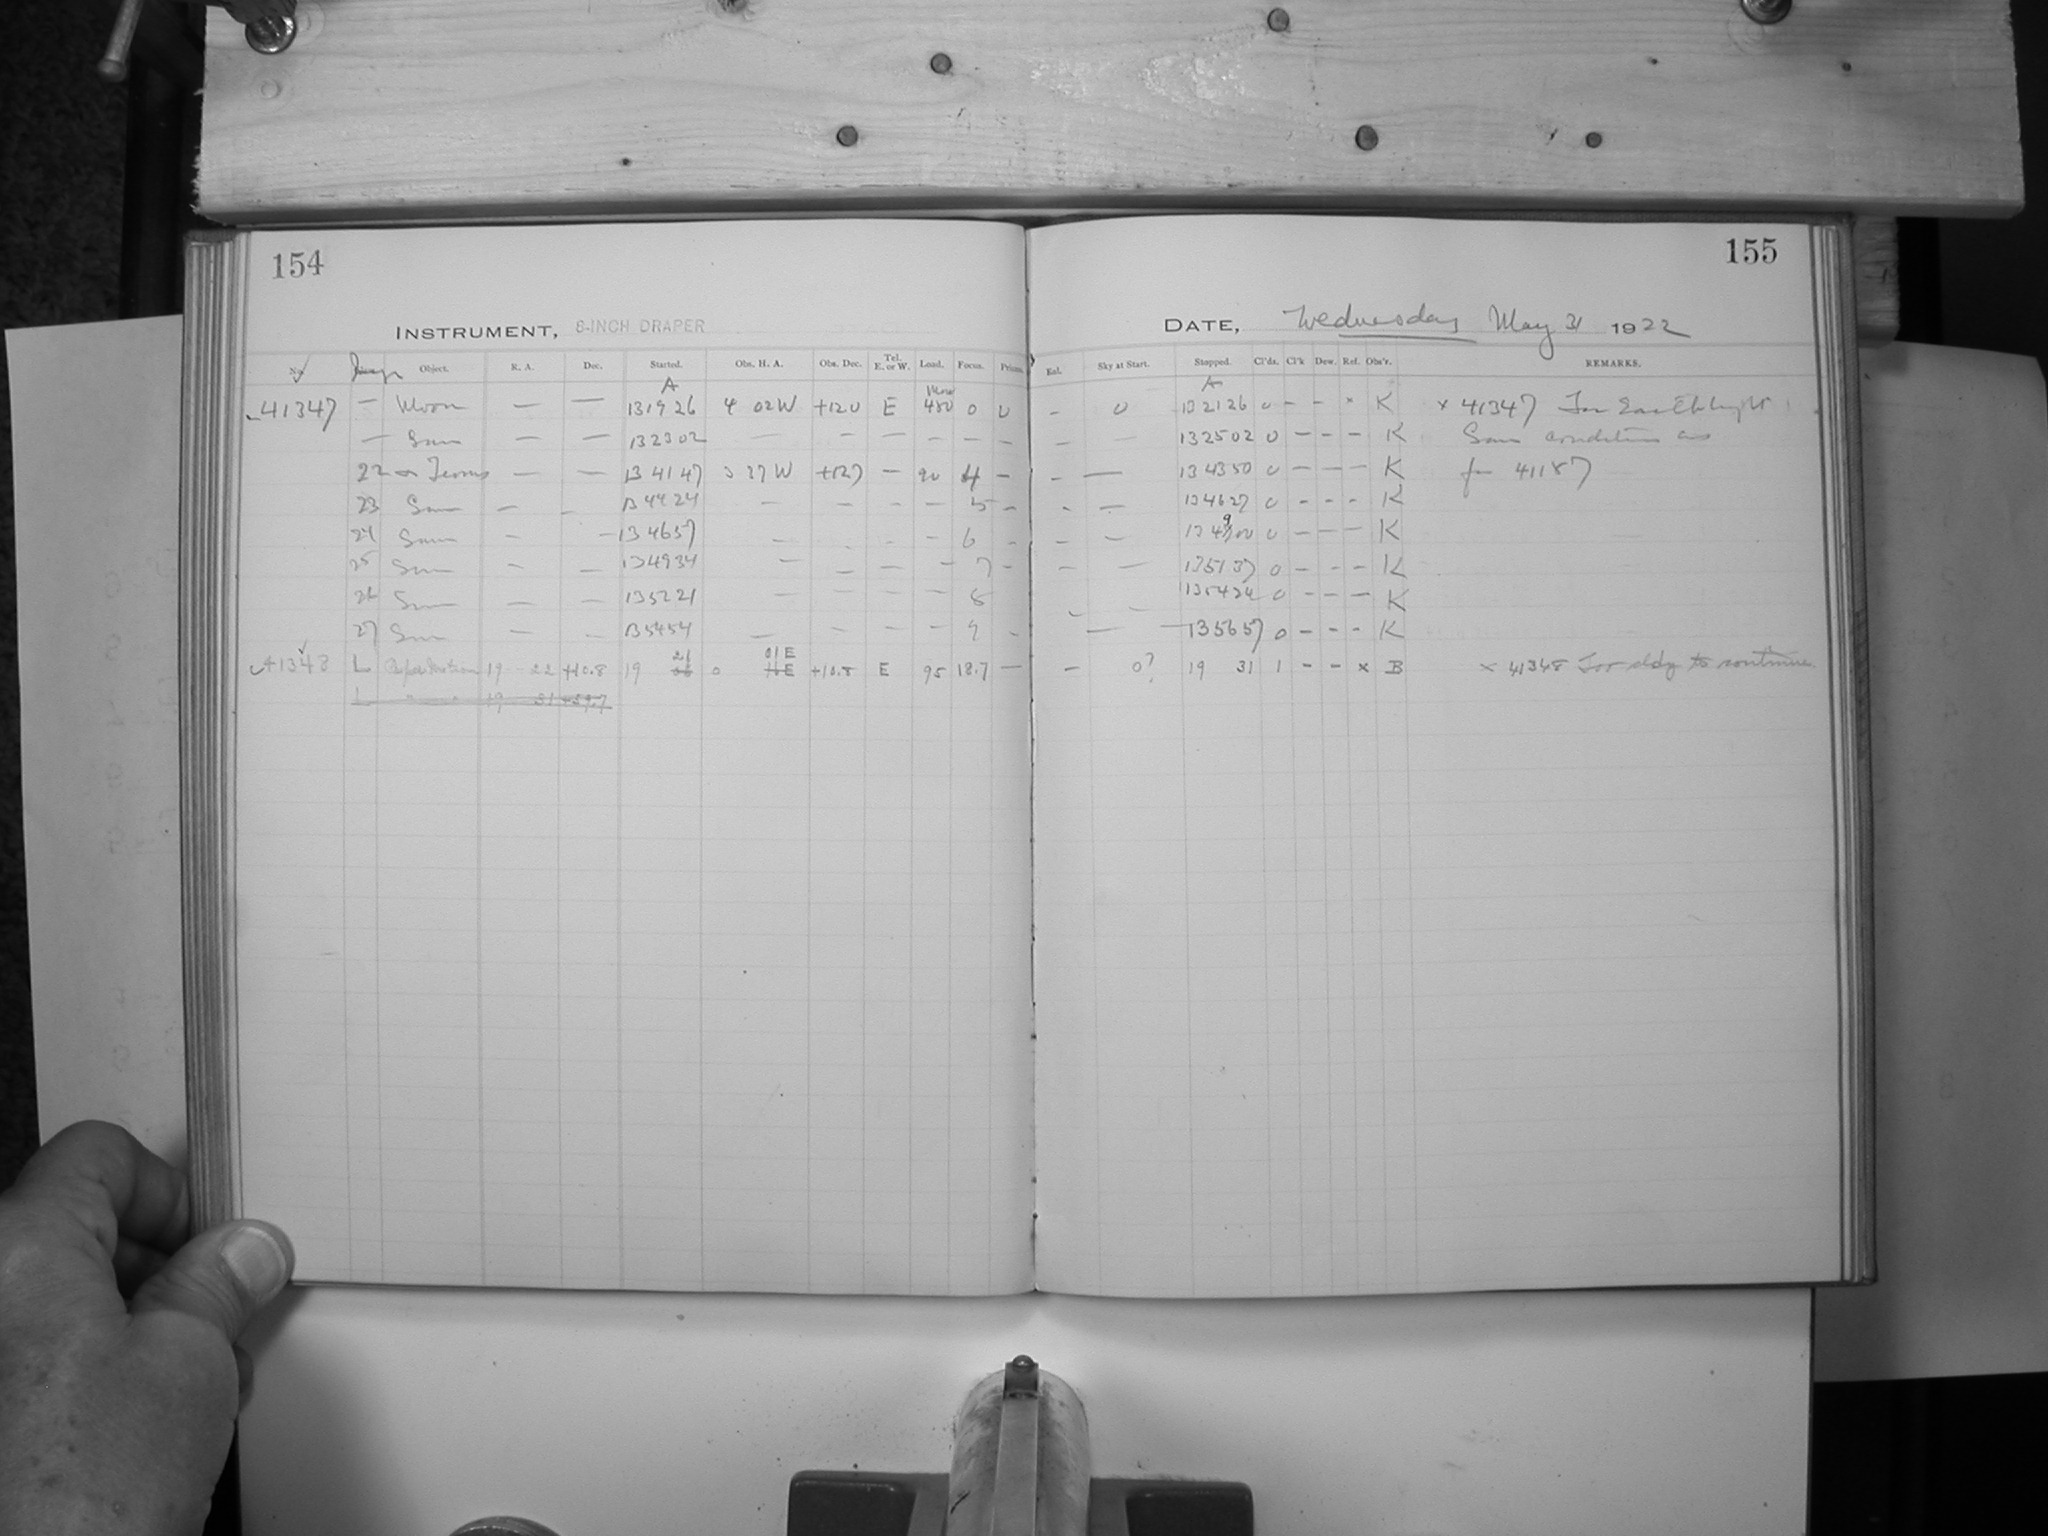 154
INSTRUMENT, 8-INCH DRAPER
No. Object. R. A. Dec. Started. Obs. H. A. Obs. Dec. Tel. E. or W. Load. Focus. Prism.
A
41347 — Moon — — 131926 4 02W +120 E 450 0 0
— Sam — — 132302 — — — — — —
22 — — 134147 3 37W +127 — 90 4 —
23 Sam — — 134424 — — — — 5 —
24 Sam — — 134657 — — — — 6 —
25 Sam — — 134934 — — — — 7 —
26 Sam — — 135221 — — — — 8
27 Sam — — 135454 — — — — 9 —
41348 L 19 22 +10.8 19 21 0 01E +10.8 E 95 18.7 —
L " 19 51 +59.7
155
DATE, Wednesday May 31 1922
Exl. Sky at Start. Stopped. Cl'ds. Cl'k Dew. Ref. Obs'r. REMARKS.
A
- 0 132126 0 - - x K x 41347 For Earthlight
— — 132502 0 — — — K Sam conditions as
- — 134350 0 — — — K for 41187
- — 134627 0 - - - K
— — 134900 0 — — — K
- — 135137 0 - - - K
- — 135424 0 - - - K
— 135657 0 - - - K
- 0? 19 31 1 - - x B x 41348 Too cldy to continue.